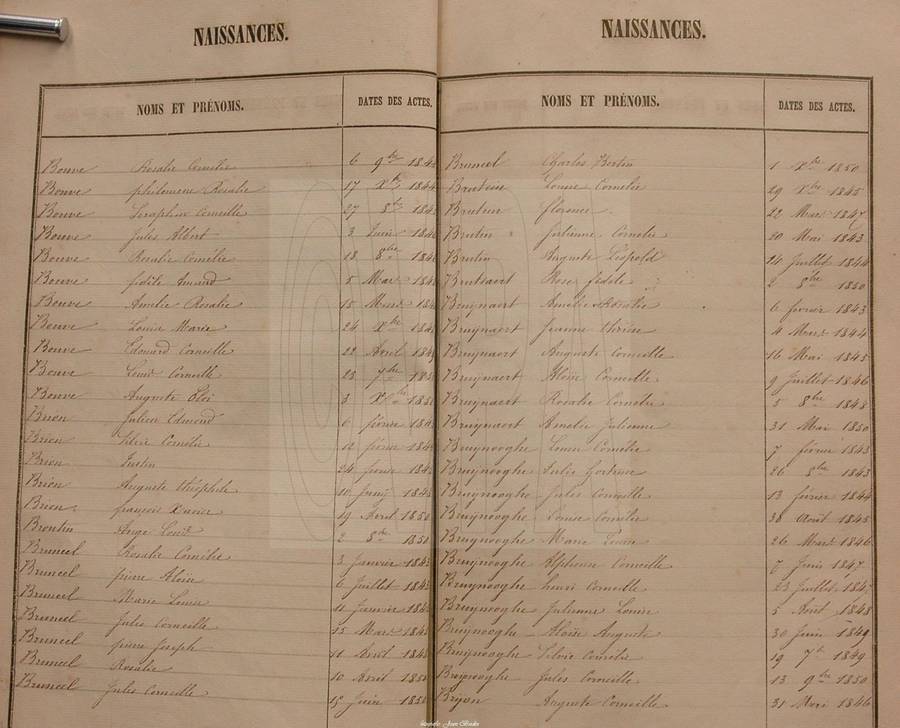 NAISSANCES.
NOMS ET PRÉNOMS. DATES DES ACTES.
Bouve Rosalie Cornélie 6 9bre
Bouve philomene Rosalie 17 Xbre 1844
Bouve Seraphin Corneille 27 8bre
Bouve Jules Albert 3 Juin
Bouve Rosalie Cornélie 18 8bre
Bouve fidèle Amand 5 Mars
Bouve Amelie Rosalie 15 Mars
Bouve Louise Marie 24 Xbre
Bouve Edouard Corneille 22 Avril
Bouve Louis Corneille 25 7bre
Bouve Auguste Eloi 3 Xbre
Brion Julien Edmond 6 février
Brion Silvie Cornélie 12 février
Brion Justin 24 février
Brion Auguste théophile 10 Juin
Brion françois Xavier 19 Avril 1850
Brontin Ange Louis 2 8bre 1850
Bruneel Rosalie Cornélie 3 Janvier
Bruneel pierre Aloïse 6 Juillet
Bruneel Marie Louise 11 Janvier
Bruneel Jules Corneille 15 Mars
Bruneel pierre Joseph 11 Avril
Bruneel Rosalie 10 Avril
Bruneel Jules Corneille 15 Juin
NAISSANCES.
NOMS ET PRÉNOMS. DATES DES ACTES.
Bruneel Charles Bertin 1 Xbre 1850
Louise Cornelie 29 Xbre 1845
Brutin florence 22 Mars 1847
Brutin Julienne Cornelie 20 Mai 1843
Brutin Auguste Léopold 24 Juillet 1844
Brutsaert Rose fidèle 2 8bre 1850
Bruynaert Amélie Rosalie 6 février 1843
Bruynaert Jeanne thérèse 4 Mars 1844
Bruynaert Auguste Corneille 16 Mai 1845
Bruynaert Aloïse Corneille 9 Juillet 1846
Bruynaert Rosalie Cornelie 5 8bre 1848
Bruynaert Amelie Julienne 31 Mai 1850
Bruynooghe Louise Cornélie 7 février 1843
Bruynooghe Julie Hortense 26 8bre 1843
Bruynooghe Jules Corneille 13 février 1844
Bruynooghe Louise Cornélie 30 Août 1845
Bruynooghe Marie Louise 26 Mars 1846
Bruynooghe Alphonse Corneille 7 Juin 1847
Bruynooghe henri Corneille 23 Juillet 1847
Bruynooghe Julienne Louise 5 Août 1848
Bruynooghe Aloïse Auguste 30 Juin 1849
Bruynooghe Silvie Cornélie 19 7bre 1849
Bruynooghe Jules Corneille 13 9bre 1850
Bryon Auguste Corneille 31 Mars 1846